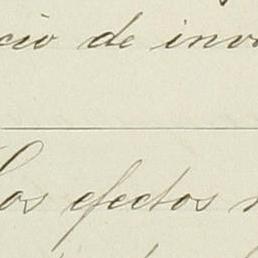 cio de inv
Los efectos